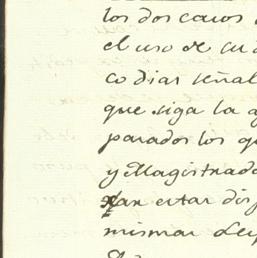 los dos casos
el uso de su d
co dias señal
que siga la a
parados los q
y Magistrado
xan estar dis
mismas Ley